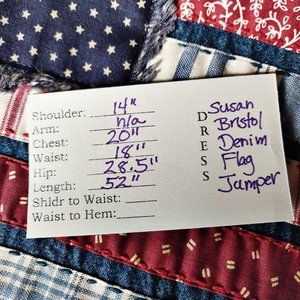 Shoulder: 14"
Arm: n/a
Chest: 20"
Waist: 18"
Hip: 28.5"
Length: 52"
Shldr to Waist:
Waist to Hem:
D Susan
R Bristol
E Denim
S Flag
S Jumper